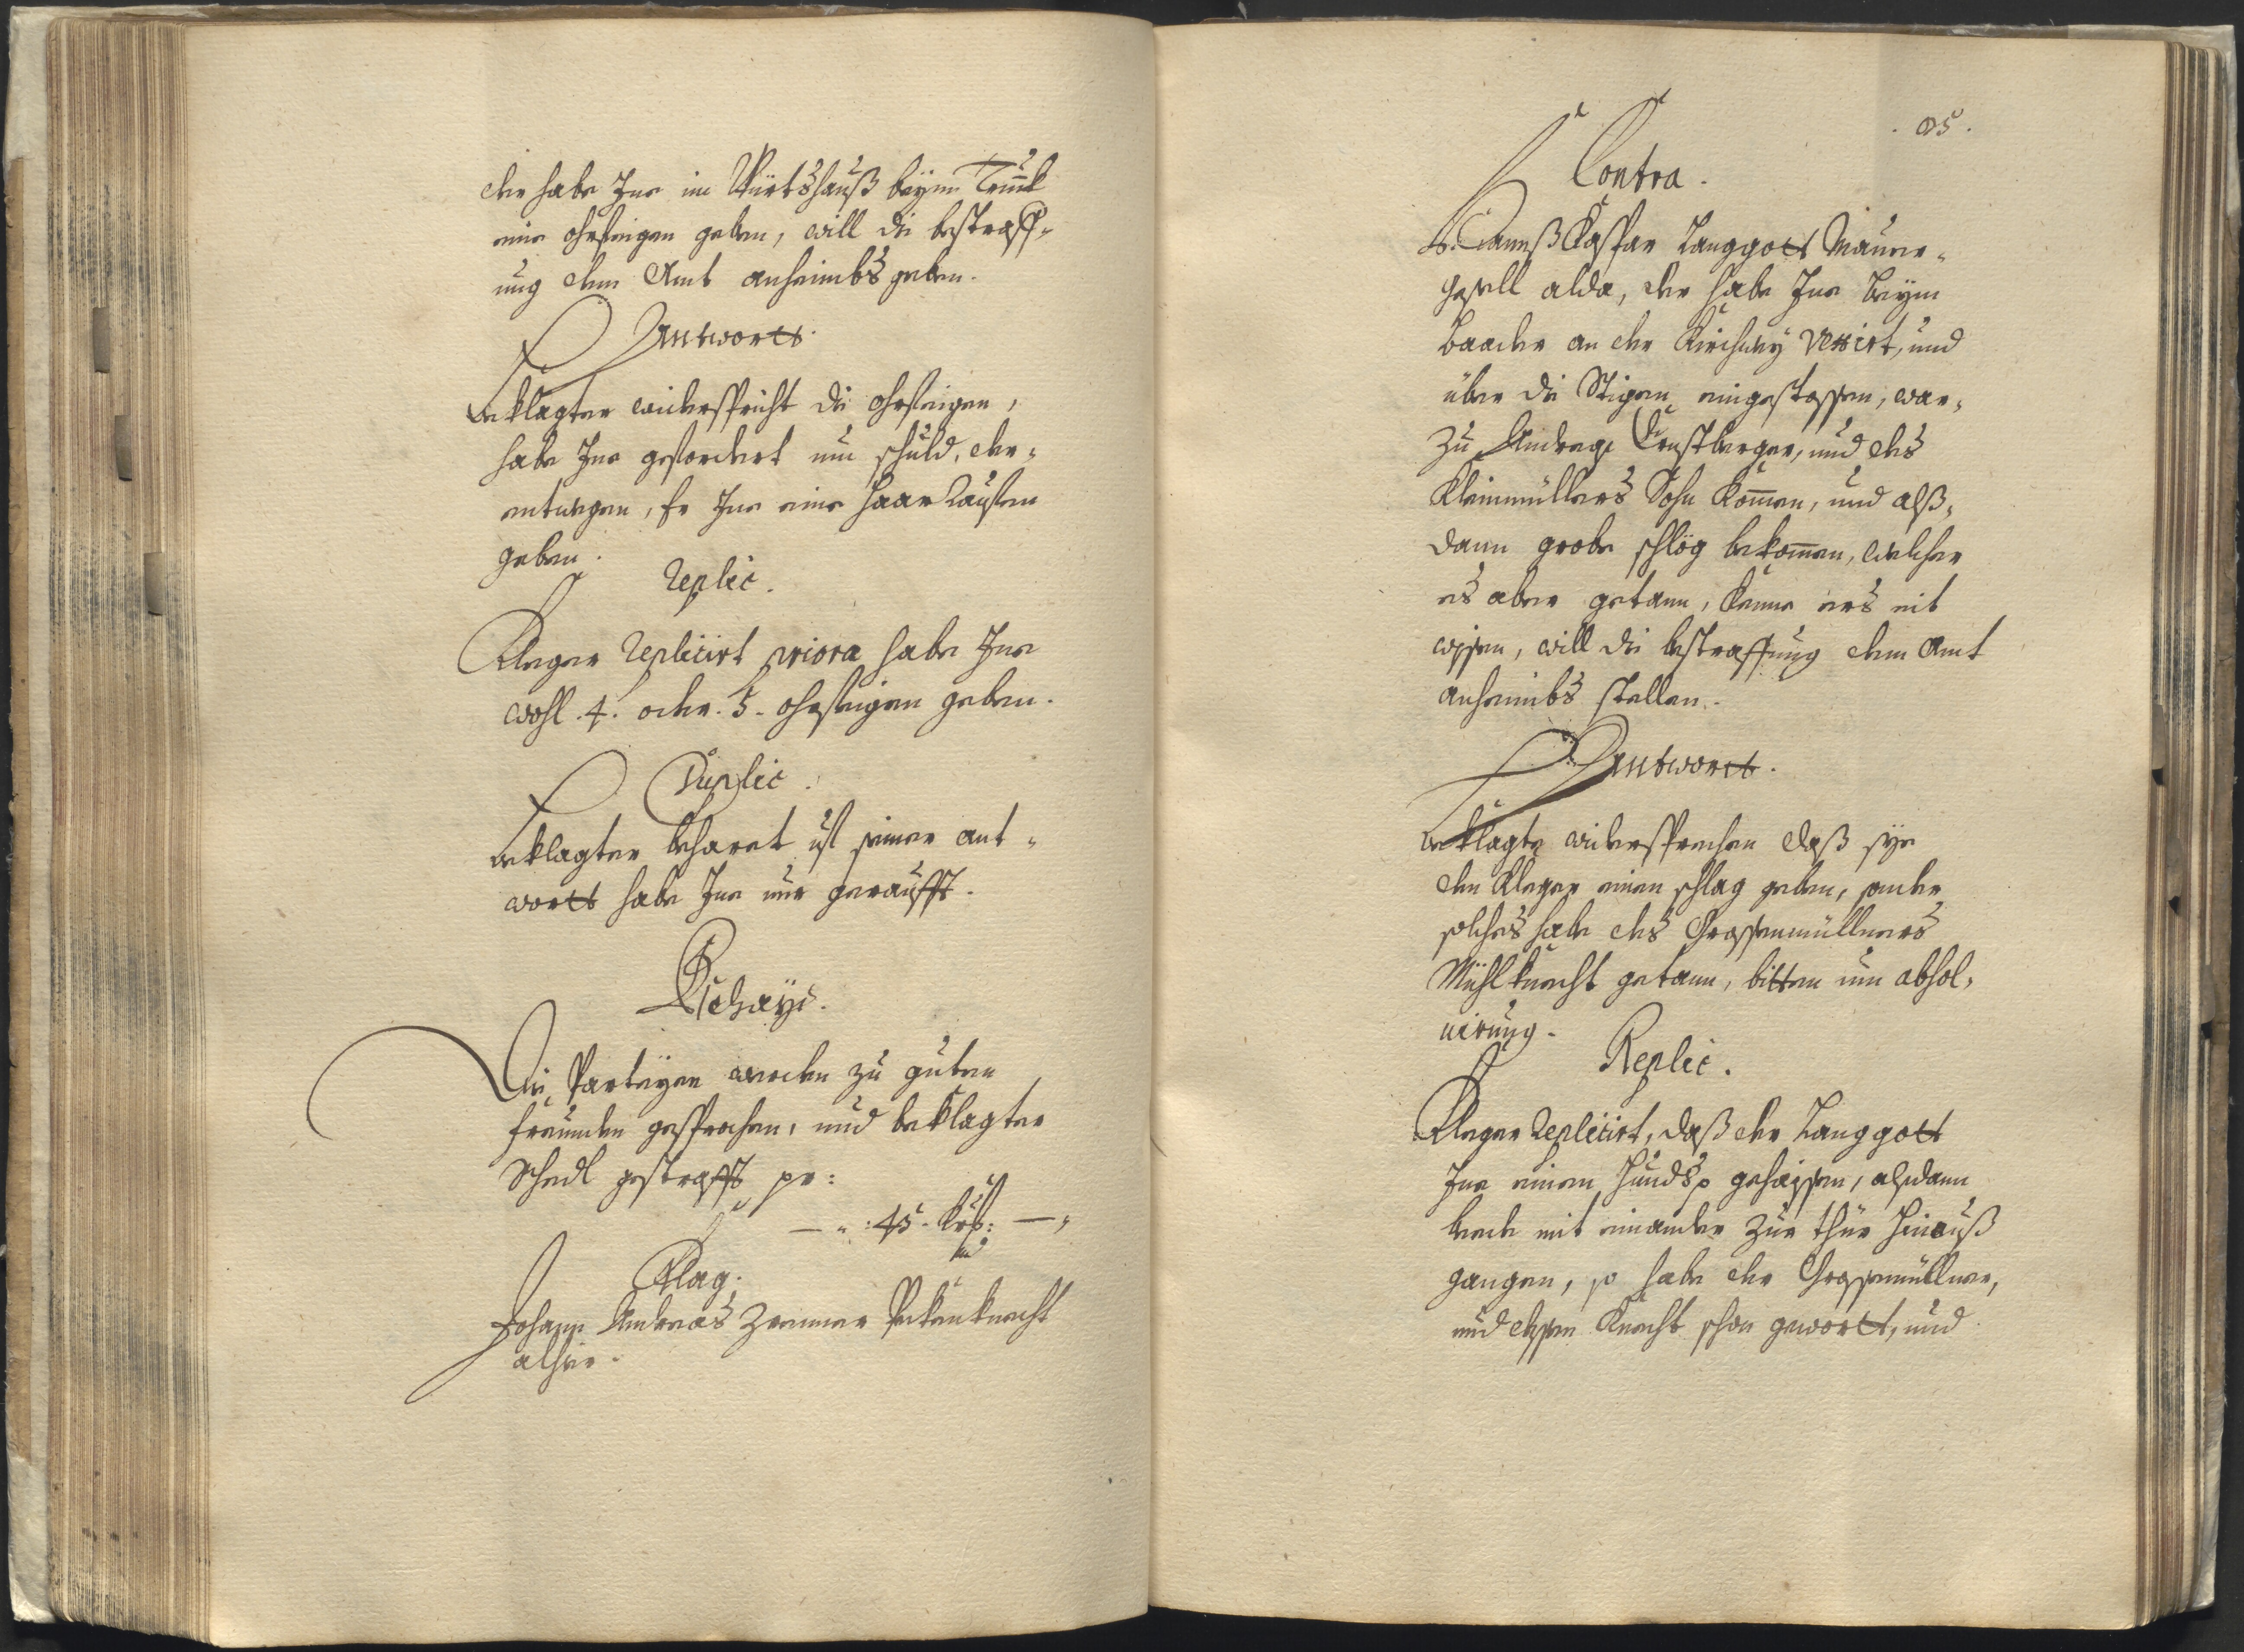 der habe Ine im Würtshauß beÿm Trunk
eine ohrfeigen geben, will die bestraff-
ung dem Amt anheimbs geben.
Antwortt.
Beklagter widerspricht die ohrfeigen,
habe Ine gefordert um schuld, der-
entwegen, Er Ine eine Haar Rauffen
geben.
Replic.
Kleger Replicirt priora habe Ine
wohl .4. oder .5. ohrfeigen geben.
Duplic.
Beklagter beharet uf seiner ant-
wortt habe Ine nur geraufft.
Beschayd.
Die Parteÿen werden zu guten
freunden gesprochen, und beklagter
Schedl gestrafft pr:
45. Krz:
Klag.
Johann Andreas Zremer Peckenknecht
alhier.
95.
Contra.
Hannß Caspar Langgott Maurer-
gesell alda, der habe Ine beÿm
Baader an der Kirchweÿ vexirt, und
über die Stigen eingestossen, war-
zu Andreas Ernstberger, und des
Kleinmüllers Sohn kommen, und alß-
dann grobe schlög bekommen, welcher
es aber getann, könne ers nit
wissen, will die bestraffung dem Amt
anheimbs stellen.
Antwortt.
Beklagte widersprechen daß sye
dem Kleger einen schlag geben, sonder
solches habe des Grossenmüllners
Mühlknecht getann, bitten um absol-
uirung.
Replic.
Kleger Replicirt, daß der Langgott
Ine einen Hundsf. gehaissen, alßdann
beede mit einander zur thür hinauß
gangen, so habe der Grossenmüllner,
und dessen Knecht schon gewortt, und